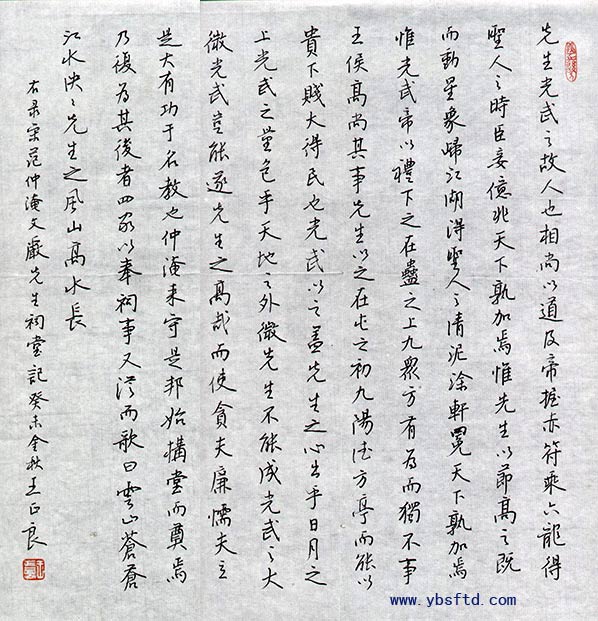 先生光武之故人也相尚以道及帝握赤符乘六龍得
聖人之時臣妾億兆天下孰加焉惟先生以節高之既
而動星象歸江湖得聖人之清泥涂軒冕天下孰加焉
惟光武帝以禮下之在蠱之上九眾方有為而獨不事
王侯高尚其事先生以之在屯之初九陽德方亨而能以
貴下賤大得民也光武以之蓋先生之心出乎日月之
上光武之量包乎天地之外微先生不能成光武之大
微光武豈能遂先生之高哉而使貪夫廉懦夫立
是大有功于名教也仲淹来守是邦始構堂而奠焉
乃復為其後者四家以奉祠事又従而歌曰雲山蒼蒼
江水泱々先生之風山高水長
右录宋范仲淹文嚴先生祠堂記癸未金秋王正良
www.ybsftd.com